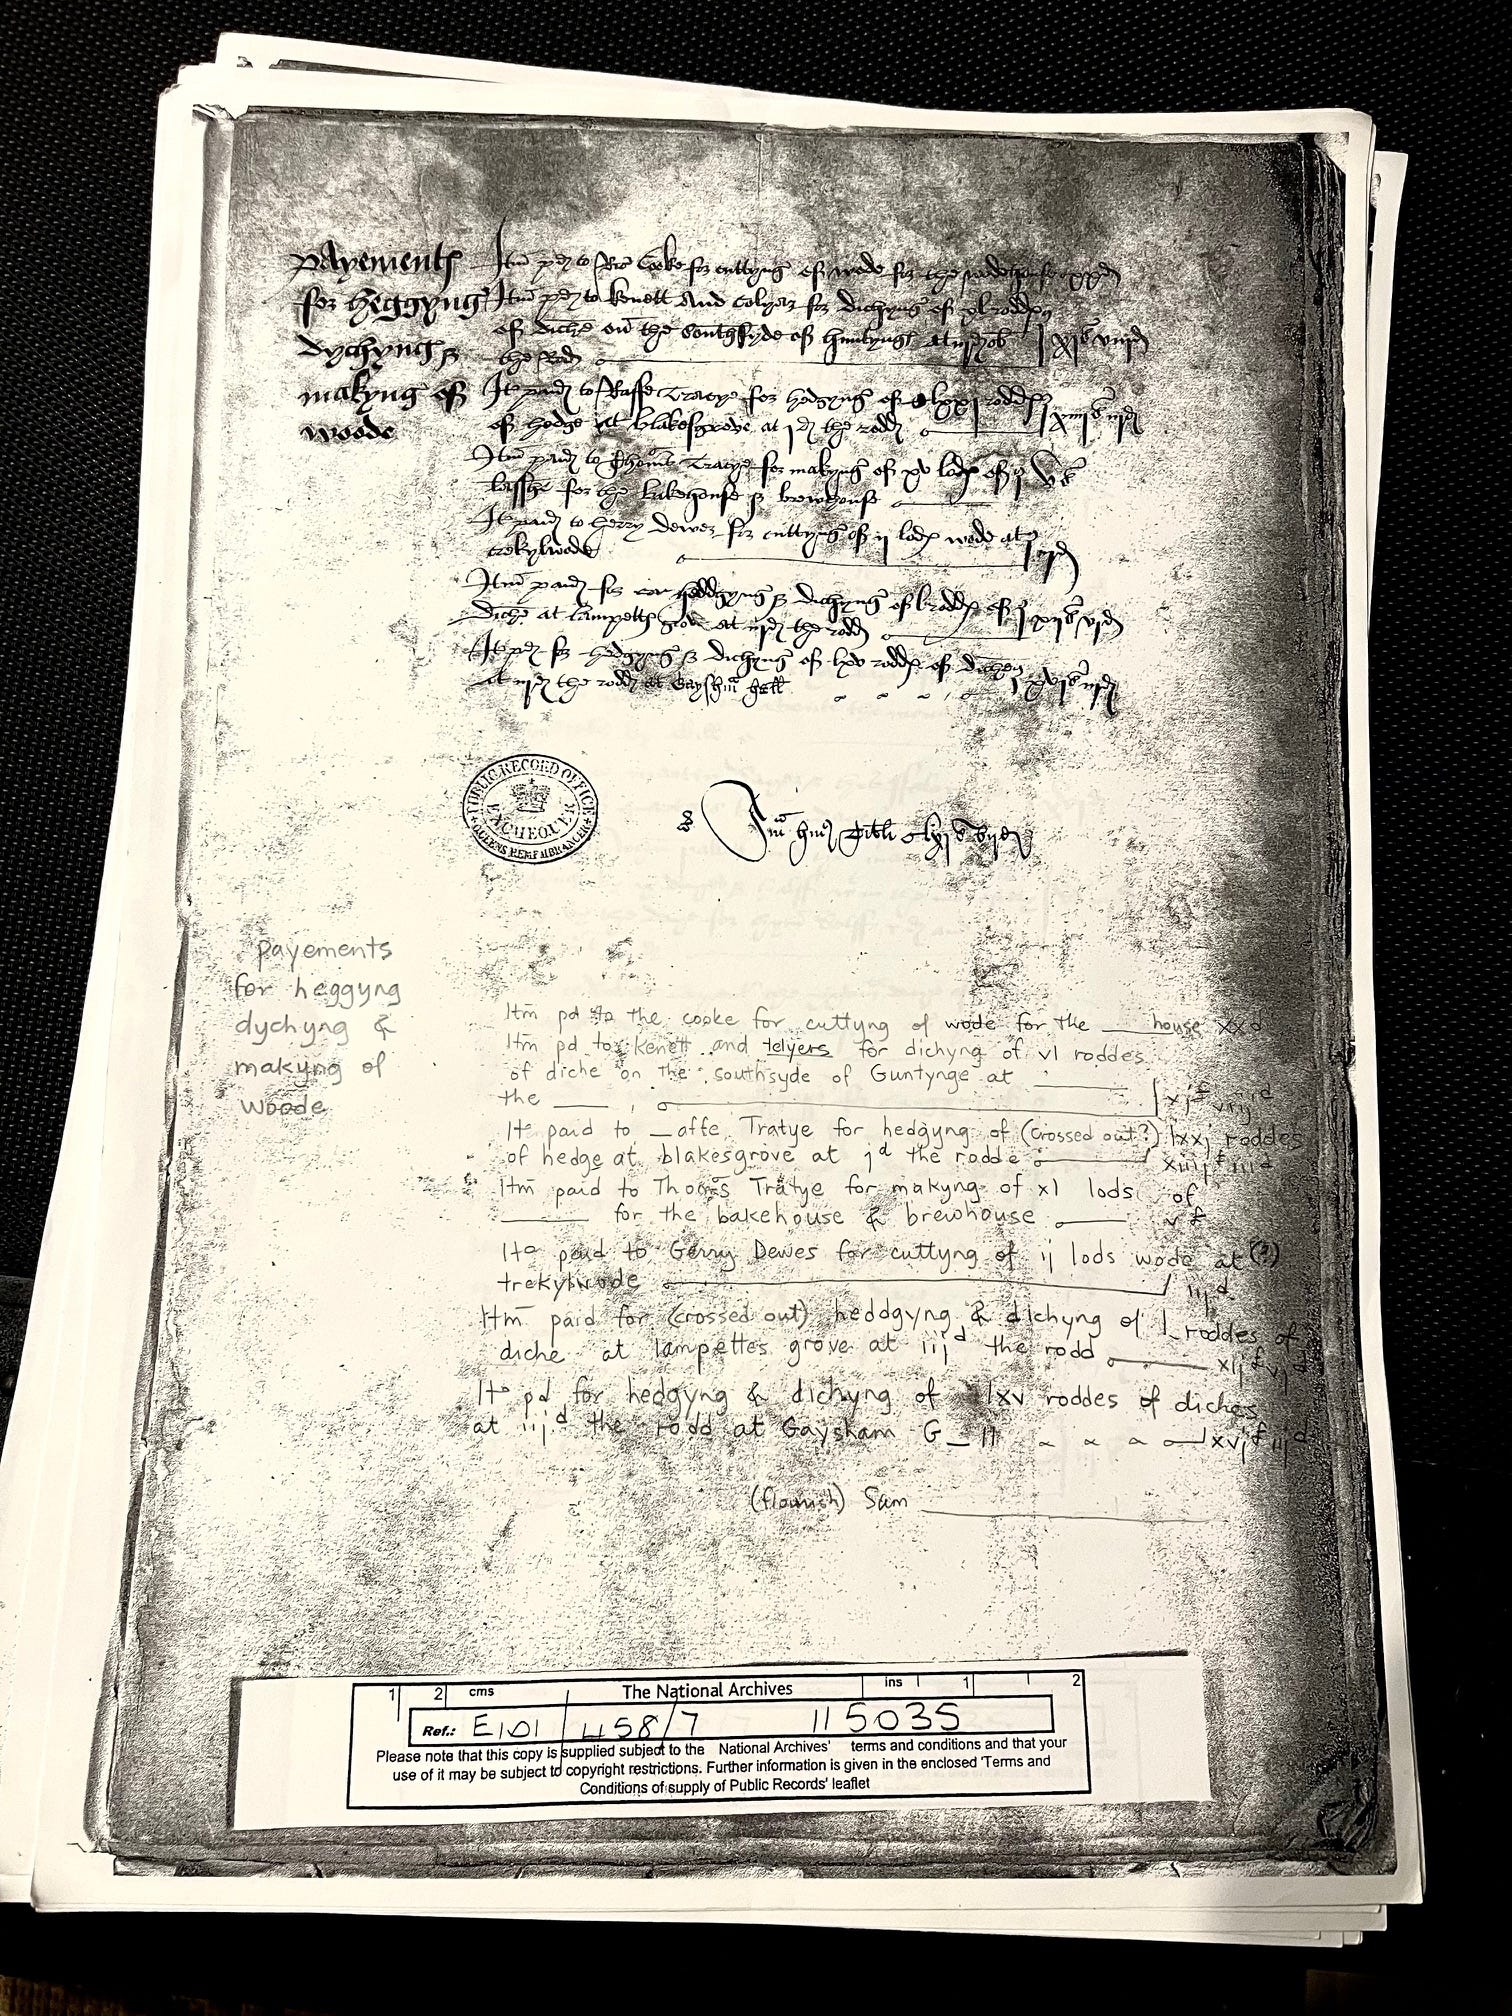 payements
for heggyng
dychyng &
makyng of
woode
Itm pd to cooke for cuttyng of wode for the
Itm pd to kenett and for dichyng of roddes
of diche on the Southsyde of
the
It paid to Raffe Tratye for hedgyng of lxxj roddes
of hedge at blakesgrove at jd the rodde xiiijs iijd
Itm paid to Thoms Tratye for makyng of xv lods of
for the bakehouse & brewhouse
It paid to herry Dewes for cuttyng of ij lods wode at
Itm paid for heddgyng & dichyng of l roddes of xijs vjd
diche at lampettes grove at iijd the rodd
It pd for hedgyng & dichyng of lxv roddes of diches xvjs iijd
at iijd the rodd at Gaysham hall
PUBLIC RECORD OFFICE
EXCHEQUER
QUEENS REMEMBRANCER
Sm
payements
for heggyng
dychyng &
makyng of
woode
Itm pd to the cooke for cuttyng of wode for the ___ house xxd
Itm pd to kenett and telyers for dichyng of vl roddes
of diche on the southsyde of Guntynge at ____
the ___ xjs viijd
Ite paid to _affe Tratye for hedgyng of (crossed out?) lxxj roddes
of hedge at blakesgrove at jd the rodde xiiijs iiid
Itm paid to Thoms Tratye for makyng of xl lods of
____ for the bakehouse & brewhouse vs
Ite paid to Gerry Dewes for cuttyng of ij lods wode at (?)
trekylwode iijd
Itm paid for (crossed out) heddgyng & dichyng of l_roddes of
diche at lampettes grove at iijd the rodd xijs vjd
Ite pd for hedgyng & dichyng of lxv roddes of diches
at iijd the rodd at Gaysham G_ll xvjs iijd
(flourish) Sum ____
1 2 cms The National Archives ins 1 2
Ref.: E101 458/7 115035
Please note that this copy is supplied subject to the National Archives' terms and conditions and that your
use of it may be subject to copyright restrictions. Further information is given in the enclosed 'Terms and
Conditions of supply of Public Records' leaflet